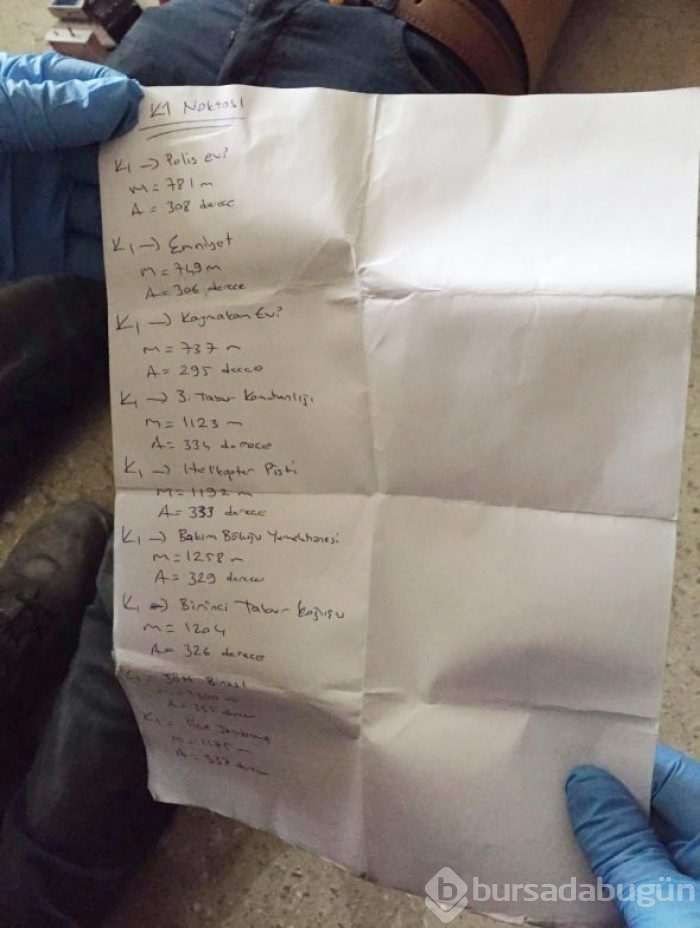 K1 Noktası
K1 → Polis evi
M = 781 m
A = 308 derece
K1 → Emniyet
M = 749 m
A = 306 derece
K1 → Kaymakam Evi
M = 737 m
A = 295 derece
K1 → 3. Tabur Komutanlığı
M = 1123 m
A = 334 derece
K1 → Helikopter Pisti
M = 1192 m
A = 333 derece
K1 → Bakım Bölüğü Yemekhanesi
M = 1258 m
A = 329 derece
K1 → Birinci Tabur Koğuşu
M = 1204
A = 326 derece
K1 = Binası
A = derece
K1 = İlçe
M = 1175 m
A = derece
bursadabugün